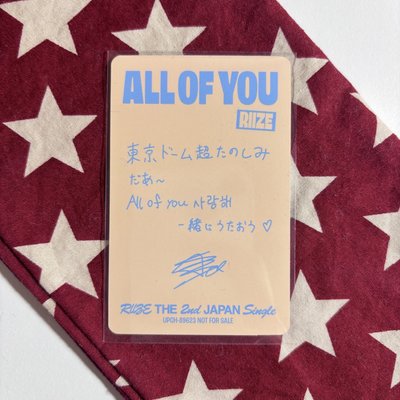 ALL OF YOU
RIIZE
東京ドーム超たのしみ
だあ〜
All of you 사랑해
一緒にうたおう♡
RIIZE THE 2nd JAPAN Single
UPGH-89623 NOT FOR SALE